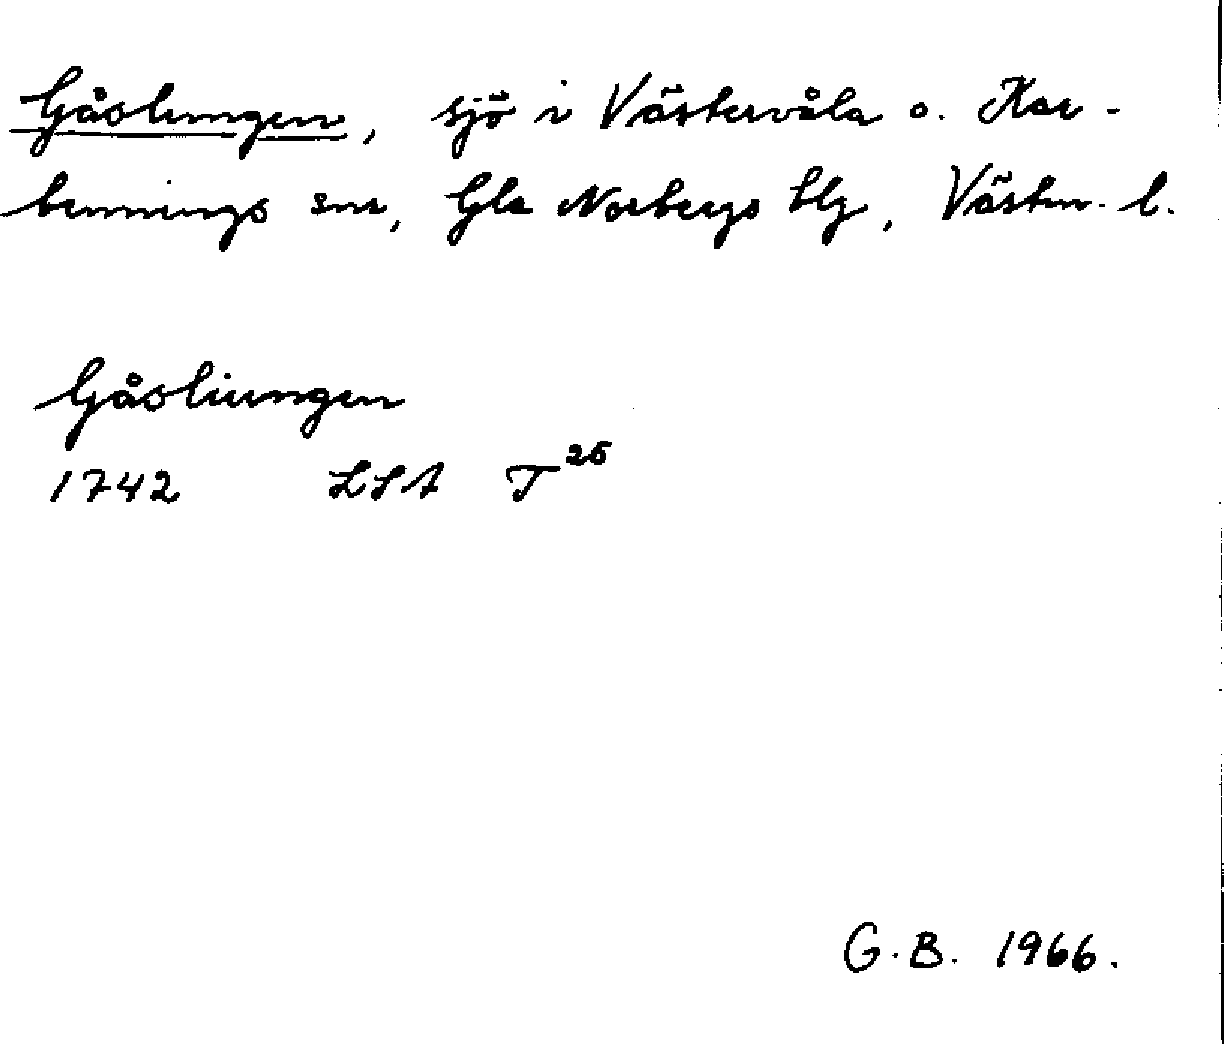 Gåslungen, sjö i Västervåla o. Kar-
bennings snr, Gla Norbergs blg, Västm. l.
Gåsliungen
1742 LSA T25
G.B. 1966.